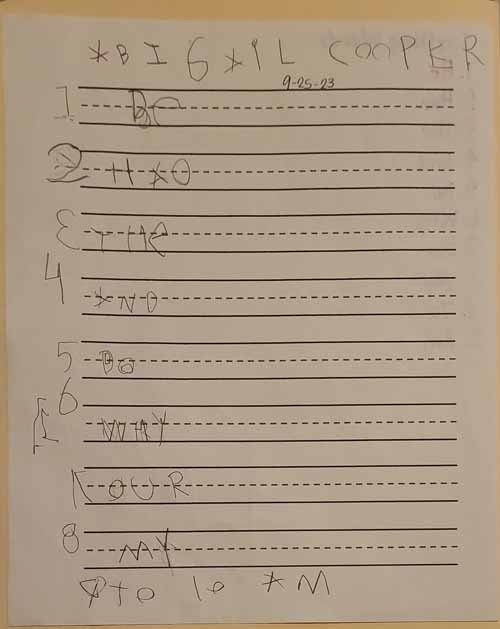 ABIGAIL COOPER
9-25-23
1 Be
2 HAD
3 THe
4 AND
5 Do
6 WHY
7 OUR
8 MY
9 to 10 AM